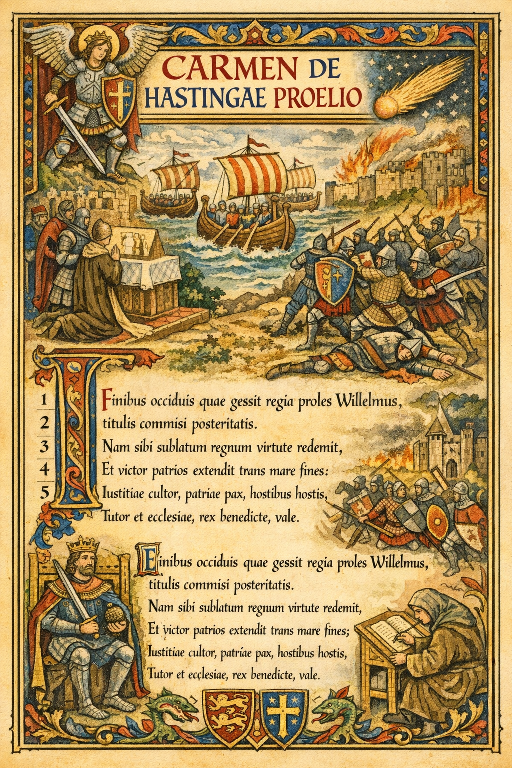 CARMEN DE
HASTINGAE PROELIO
1
2
3
4
5
Finibus occiduis quae gessit regia proles Willelmus,
titulis commisi posteritatis.
Nam sibi sublatum regnum virtute redemit,
Et victor patrios extendit trans mare fines:
Iustitiae cultor, patriae pax, hostibus hostis,
Tutor et ecclesiae, rex benedicte, vale.
Einibus occiduis quae gessit regia proles Willelmus,
titulis commisi posteritatis.
Nam sibi sublatum regnum virtute redemit,
Et victor patrios extendit trans mare fines;
Iustitiae cultor, patriae pax, hostibus hostis,
Tutor et ecclesiae, rex benedicte, vale.